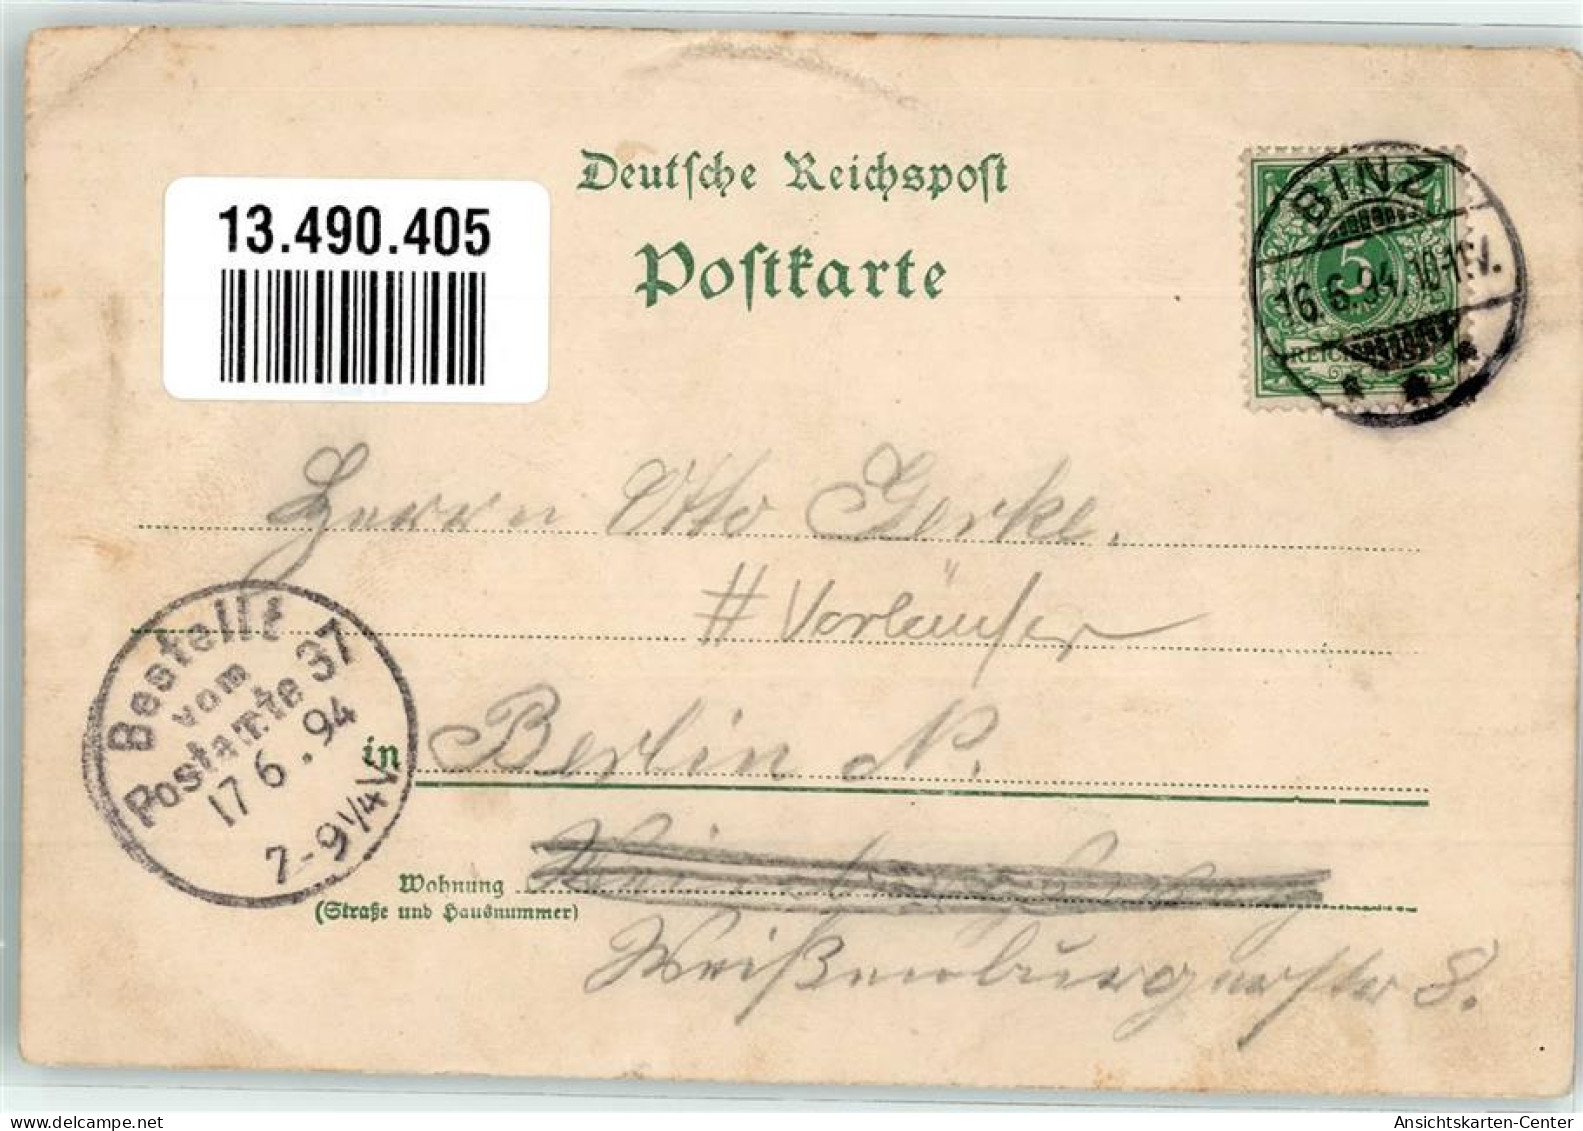 Deutsche Reichspost
Postkarte
13.490.405
BINZ
16.6.94.10-11V.
5
Herrn Otto Gerke.
# Vorläufer
Bestellt
vom
Postamte 37
17 6.94
7-9¼V.
in Berlin N.
Wohnung
(Straße und Hausnummer)
Weißenburgerstr 8.
Ansichtskarten-Center